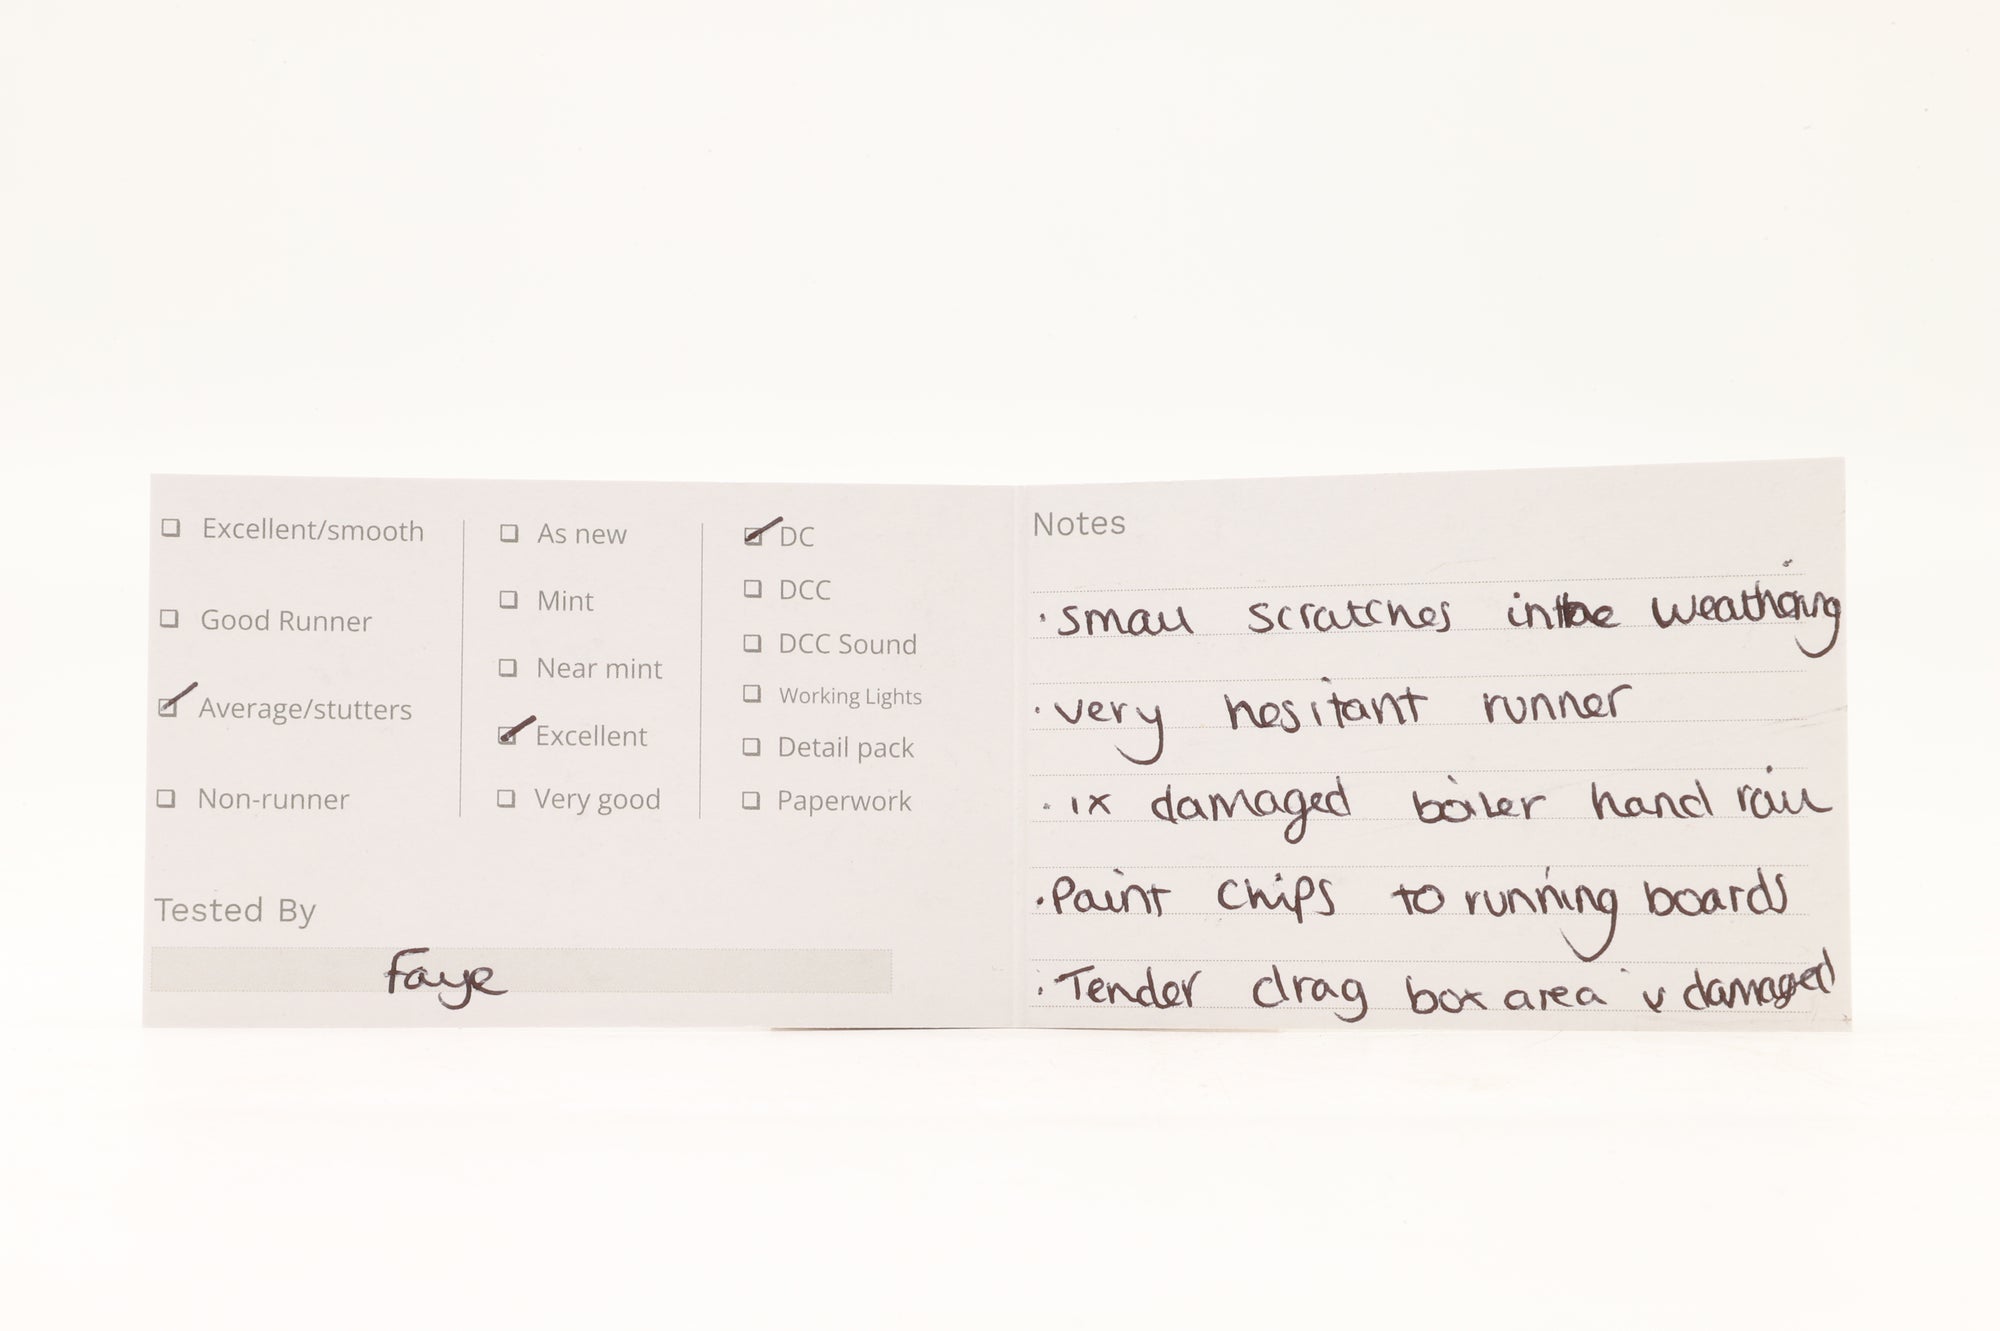 ☐ Excellent/smooth
☐ Good Runner
☑ Average/stutters
☐ Non-runner
☐ As new
☐ Mint
☐ Near mint
☑ Excellent
☐ Very good
☑ DC
☐ DCC
☐ DCC Sound
☐ Working Lights
☐ Detail pack
☐ Paperwork
Tested By
Faye
Notes
· Small scratches in the weathering
· very hesitant runner
· 1x damaged boiler hand rail
· Paint chips to running boards
· Tender drag box area v damaged